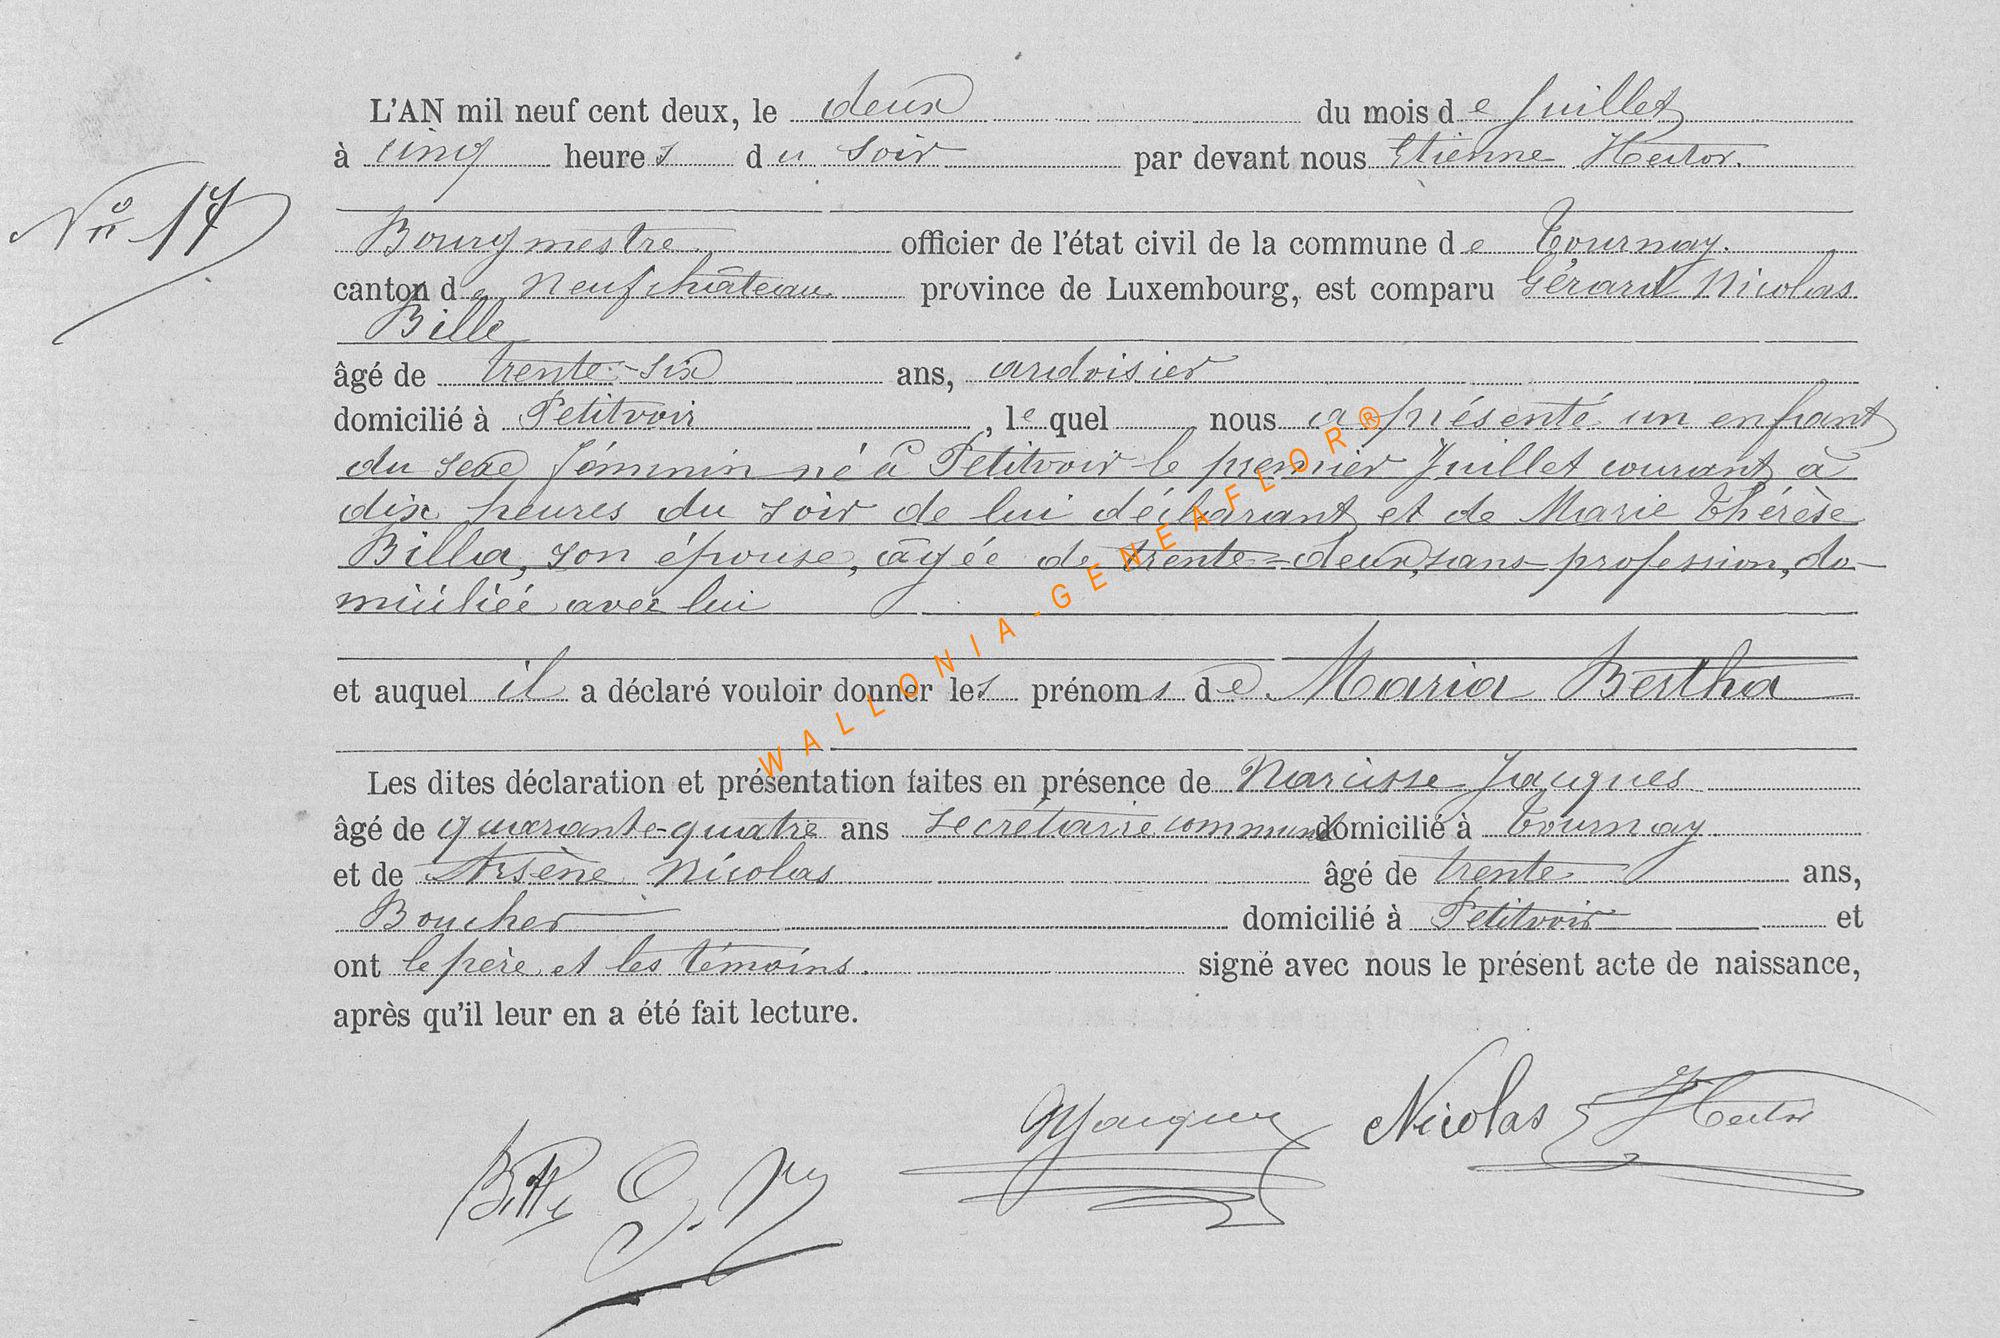 L'AN mil neuf cent deux, le deux du mois de Juillet
à cinq heures du soir par devant nous Etienne Hector.
Nº 17
Bourgmestre officier de l'état civil de la commune de Tournay.
canton de Neufchâteau province de Luxembourg, est comparu Gérard Nicolas
Bille
âgé de trente-six ans, ardoisier
domicilié à Petitvoir, lequel nous a présenté un enfant
du sexe féminin né à Petitvoir le premier Juillet courant à
dix heures du soir de lui déclarant et de Marie Thérèse
Billa, son épouse, âgée de trente-deux, sans profession, do-
miciliée avec lui
et auquel il a déclaré vouloir donner les prénoms de Maria Bertha
Les dites déclaration et présentation faites en présence de Narcisse Jacques
âgé de quarante-quatre ans secrétaire communal domicilié à Tournay
et de Arsène Nicolas âgé de trente ans,
Boucher domicilié à Petitvoir et
ont le père et les témoins. signé avec nous le présent acte de naissance,
après qu'il leur en a été fait lecture.
NJacques Nicolas E Hector
Bille G. N
WALLONIA-GENEAFLOR®